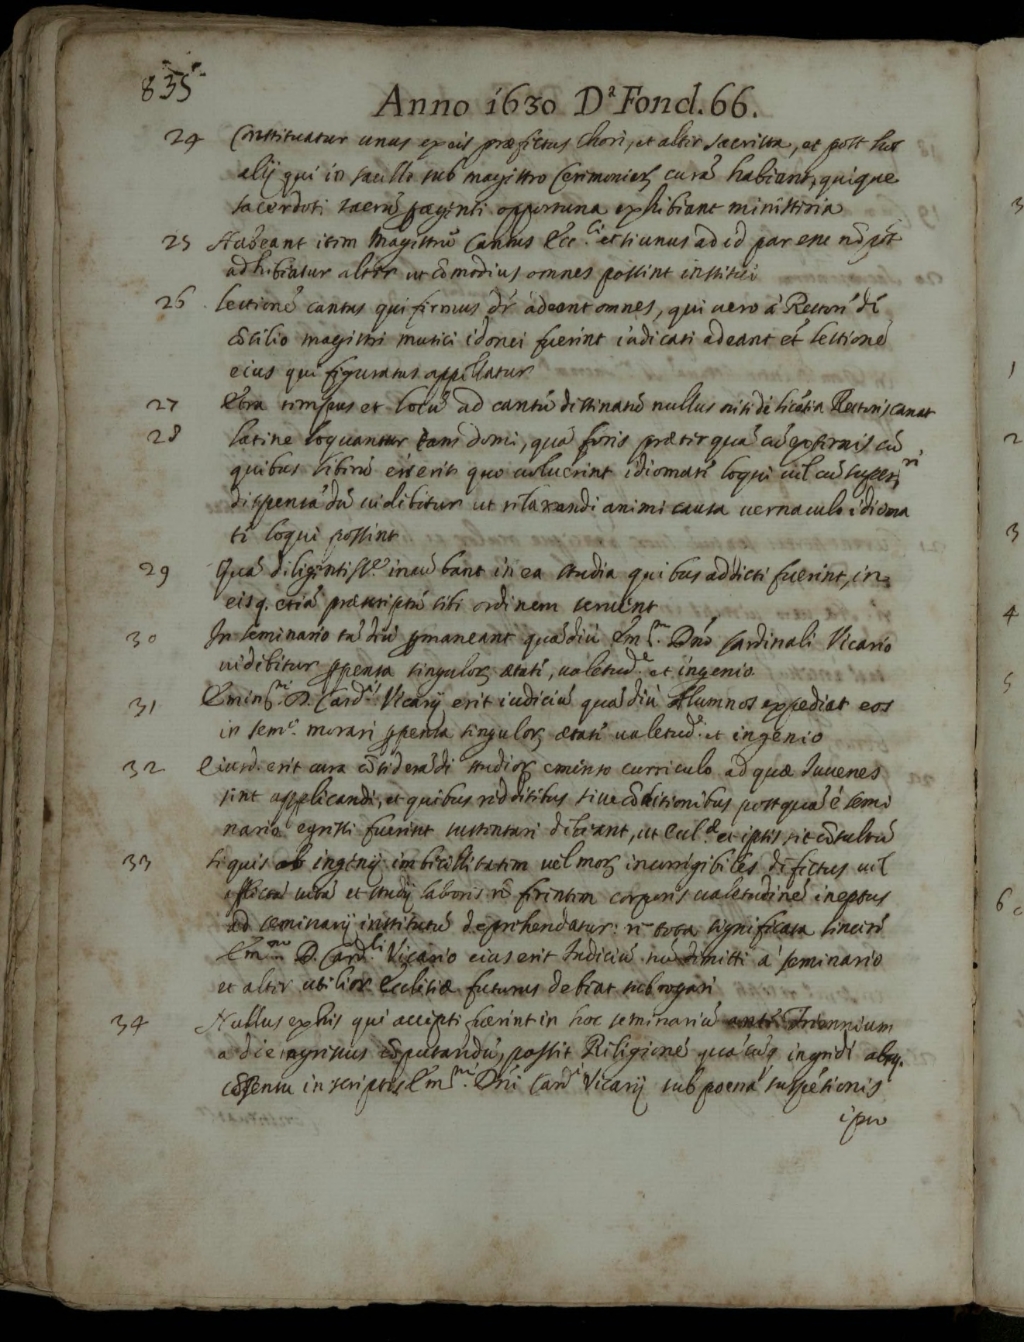 835
Anno 1630 Dª Foncl. 66.
24 Constituatur unus ex eis præfectus Chori, et alter sacrista, et post hos
alij qui in sacello sub magistro Cerimoniar̃ curã habeant, quique
sacerdoti sacrũ pagenti opportuna exhibeant ministeria
25 Habeant item Magistrũ Cantus Ecc.ci et si unus ad id par esse nõ põt
adhibeatur alter ut cõmodius omnes possint institui
26 lectionẽ cantus qui firmus dr̃ adeant omnes, qui vero à Rectori de
cõsilio magistri musici idonei fuerint iudicati adeant et lectionẽ
eius qui figuratus appellatur
27 Extra tempus et locũ ad cantũ destinatũ nullus nisi de licẽtia Rectoris canat
28 latine loquantur tam domi, quã foris præterquã cũ externis cũ
quibus liberũ eis erit quo voluerint idiomate loqui vel cũ superi,ri
dispensãdũ videbitur ut relaxandi animi causa vernaculo idioma
te loqui possint
29 Quã diligentiss.e incũbant in ea studia quibus addicti fuerint, in
eisq. etiã præscriptũ sibi ordinem servent
30 In seminario tãdiu permaneant quãdiu Em.mo Dño Cardinali Vicario
videbitur pensa singulor̃ ætate, valetud.e et ingenio
31 Emin.mi D. Card.li Vicarij erit iudiciũ quãdiu Alumnos expediat eos
in sem.o morari pensa singulor̃ ætate valetud. et ingenio
32 Eiusd. erit cura cõsiderãdi studior̃ emenso curriculo ad quæ Iuvenes
sint applicandi, et quibus redditibus sive cõditionibus postquã è semi
nario egressi fuerint sustentari debeant, ut Eccl.æ et ipsis sit cõsultũ
33 si quis ob ingenij imbecillitatem vel mor̃ incorrigibiles defectus vel
et studij laboris nõ ferentem corporis valetudinẽ ineptus
ad seminarij institutũ deprehendatur: re tota significata sincere
Em.mo D. Card.li Vicario eius erit Iudiciũ nũ dimitti à seminario
et alter utilior Ecclesiæ futurus debeat subrogari
34 Nullus ex his qui accepti fuerint in hoc seminariũ ante Triennium
a die ingressus cõputandũ, possit Religionẽ quãcũq ingredi absq.
cõsensu in scriptis Em.mi Dñi Card. Vicarij sub poena suspẽsionis
ipso